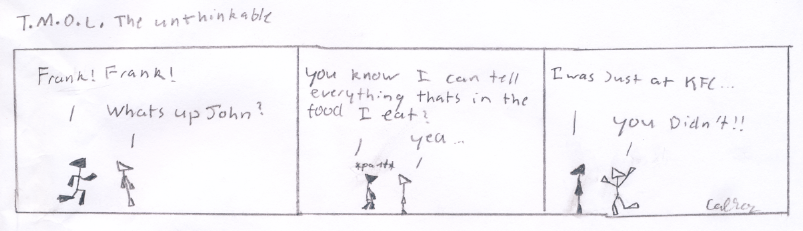 T.M.O.L. The unthinkable
Frank! Frank!
Whats up John?
you know I can tell
everything thats in the
food I eat?
yea...
*pant*
I was Just at KFC...
you Didn't!!